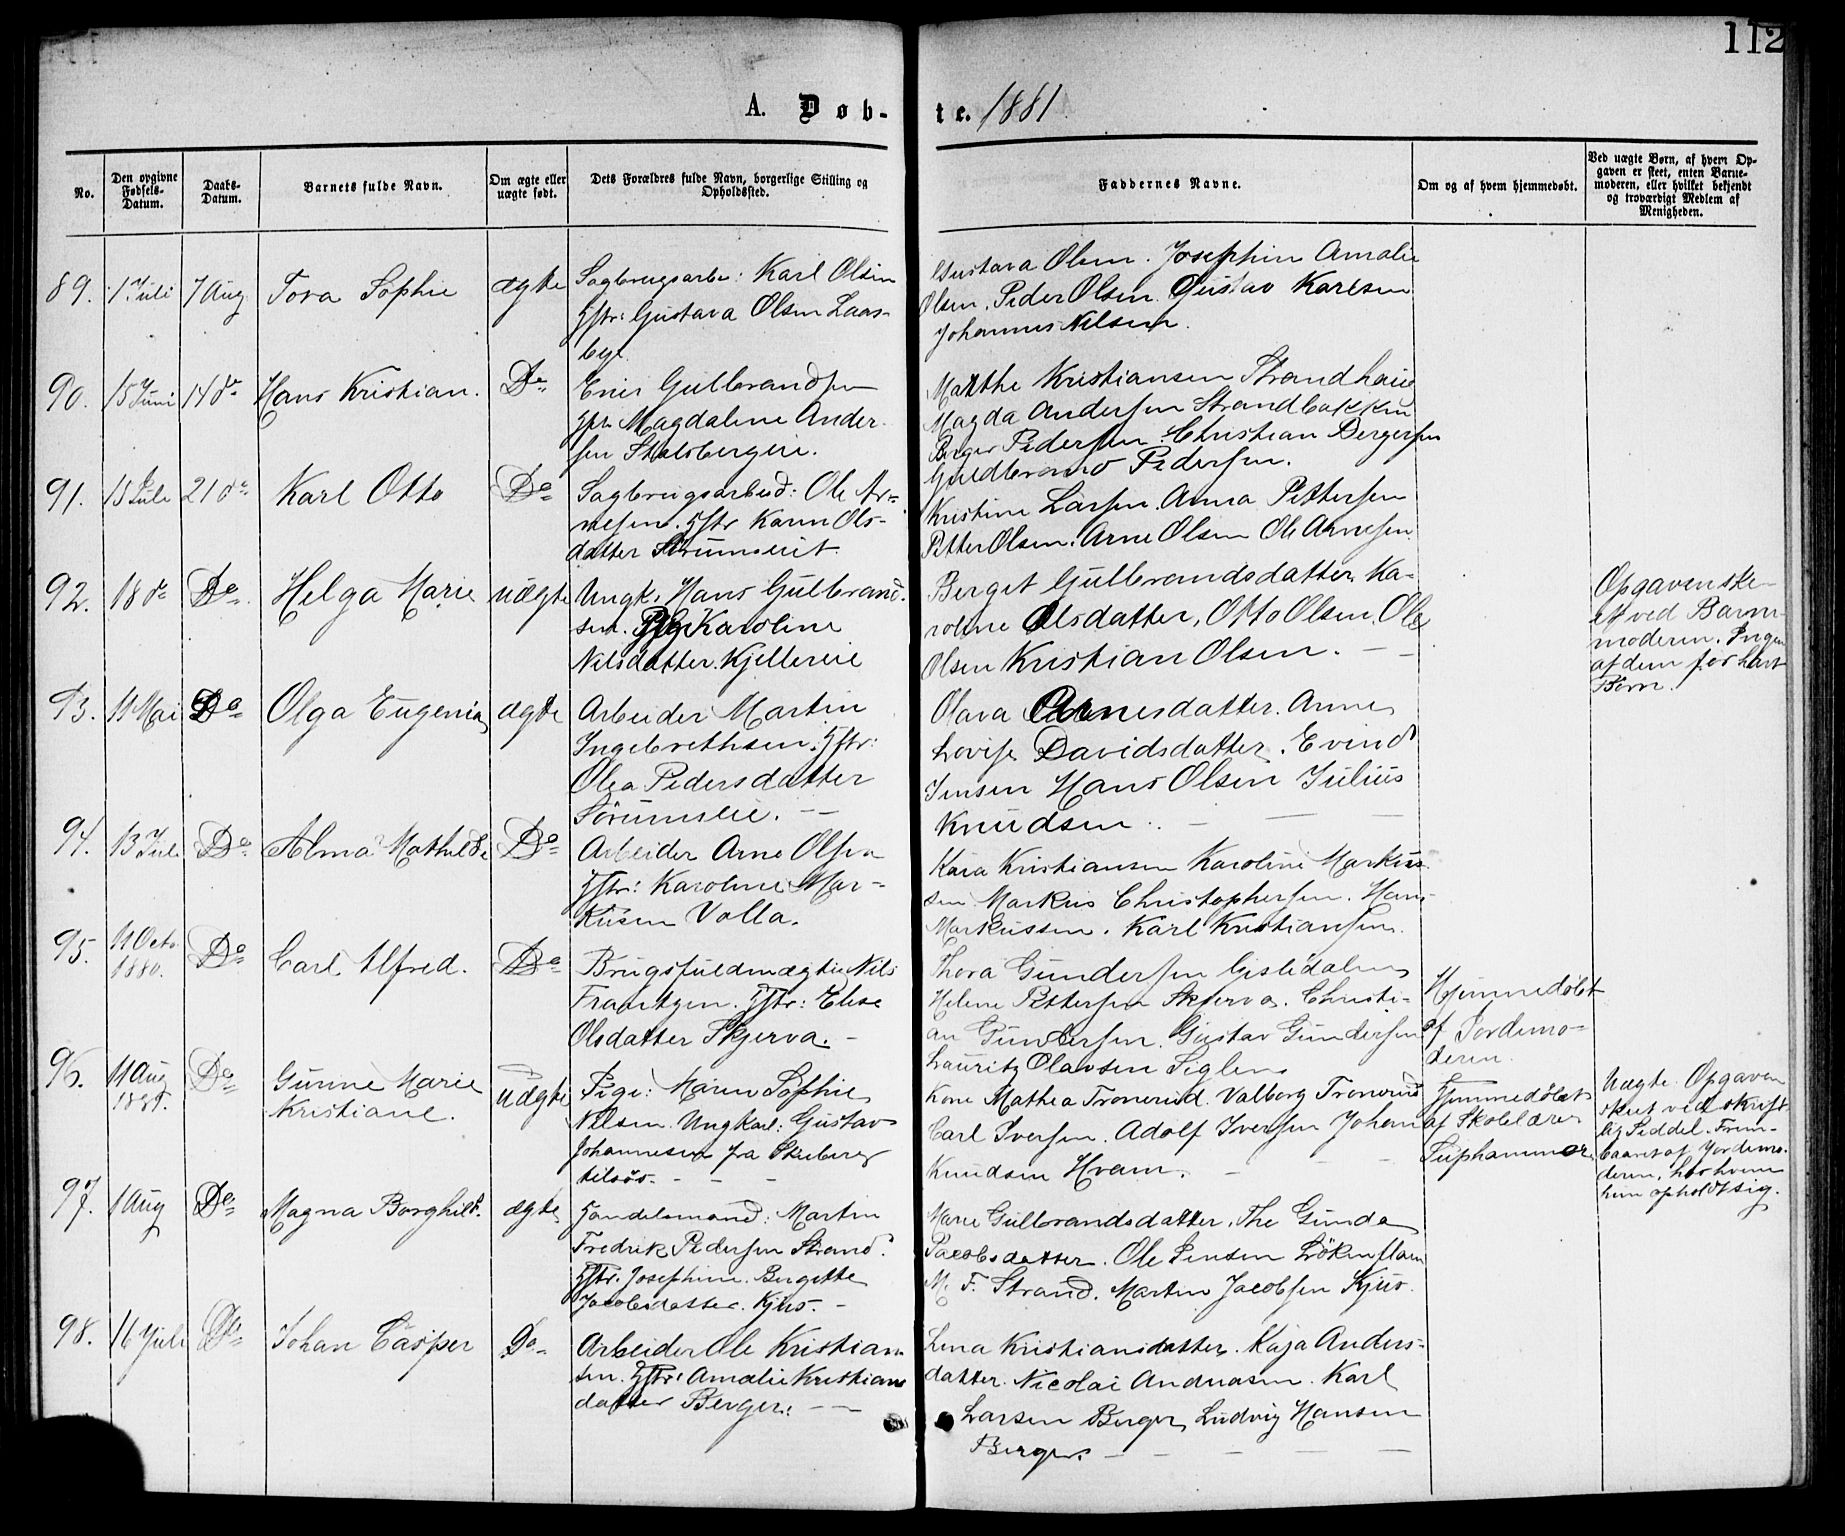 112
A. Døb-
te. 1881
No.
Den opgivne Fødsels-Datum.
Daabs-Datum.
Barnets fulde Navn.
Om ægte eller uægte født.
Dets Forældres fulde Navn, borgerlige Stilling og Opholdssted.
Faddernes Navne.
Om og af hvem hjemmedøbt.
Ved uægte Børn, af hvem Op-
gaven er skeet, enten Barne-
moderen, eller hvilket bekjendt
og troværdigt Medlem af
Menigheden.
89. 1 Juli 7 Aug. Tora Sophie ægte Sagbrugsarb: Karl Olsen
Hstr: Gustava Olsen Laas-
bye
Gustava Olsen. Josephin Amalie
Olsen. Peder Olsen. Gustav Karlsen
Johannes Nilsen.
90. 15 Juni 14 do Hans Kristian. Do Gulbrandsen
Magdalene Ander-
sen
Marthe Kristiansen
Magda Andersen Strandbakken
Berger Pedersen. Christian Bergersen
Guldbrand Pedersen.
91. 15 Juli 21 do Karl Otto Do Sagbrugsarbeid: Ole Ar-
nesen. Hstr Karen Ols-
datter
Kristine Larsen. Anna Pettersen
Petter Olsen. Arne Olsen Ole Arnesen.
92. 18 do Do Helga Marie uægte Ungk. Hans Gulbrand-
sen. Pige Karoline
Nilsdatter. Kjellereie
Berget Gulbrandsdatter. Ka-
roline Olsdatter, Otto Olsen, Ole
Olsen Kristian Olsen. — —
Opgaven ske-
et ved Barne-
moderen. Ingen
af dem før havt
Børn.
93. 11 Mai Do Olga Eugenia ægte Arbeider Martin
Ingebrethsen. Hstr:
Olea Pedersdatter
Sørumseie. —
Olava Arnesdatter. Anne
Lovise Davidsdatter. Evind
Jensen Hans Olsen Julius
Knudsen. — — —
94. 13 Juli Do Alma Mathilde Do Arbeider Arne Olsen
Hstr: Karoline Mar-
kusen Volla.
Kaia Kristiansen Karoline Markus-
sen Markus Christophersen. Hans
Markussen. Karl Kristiansen.
95. 11 Octo. 1880. Do Carl Alfred. Do Brugsfuldmægtig Nils
Frantzen. Hstr: Elise
Olsdatter Skjerva. —
Thora Gundersen
Helene Pettersen Skjerva. Christi-
an Gundersen. Gustav Gundersen
Lauritz Olavsen
Hjemmedøbt
af Jordemo-
deren.
96. 11 Aug 1881. Do Gunine Marie
Kristiane. uægte Pige: Maren Sophie
Nilsen. Ungkarl: Gustav
Johannesen fra Skeberg
— — —
Kone Mathea Tronerud. Valborg Tronerud
Carl Iversen. Adolf Iversen Johan
Knudsen Hvam. — — —
Hjemmedøbt
af Skolelærer
Uægte. Opgaven
skeet ved skrift-
lig Seddel. Frem-
baaret af Jordemo-
deren, hos hvem
hun opholdt sig.
97. 1 Aug Do Magna Borghild. ægte Handelsmand: Martin
Fredrik Pedersen Strand.
Hstr. Josephine Birgitte
Jacobsdatter. Kjus. —
Marie Gulbrandsdatter. Gunda
Jacobsdatter. Ole Jensen
M. F. Strand. Martin Jacobsen Kjus.
98. 16 Juli Do Johan Casper Do Arbeider Ole Kristian-
sen. Hstr: Amalie Kristians-
datter Berger. — —
Lena Kristiansdatter. Kaja Anders-
datter. Nicolai Andreasen. Karl
Larsen Berger, Ludvig Hansen
Berger. — — — — —